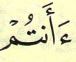 ءَأَنتُمْ